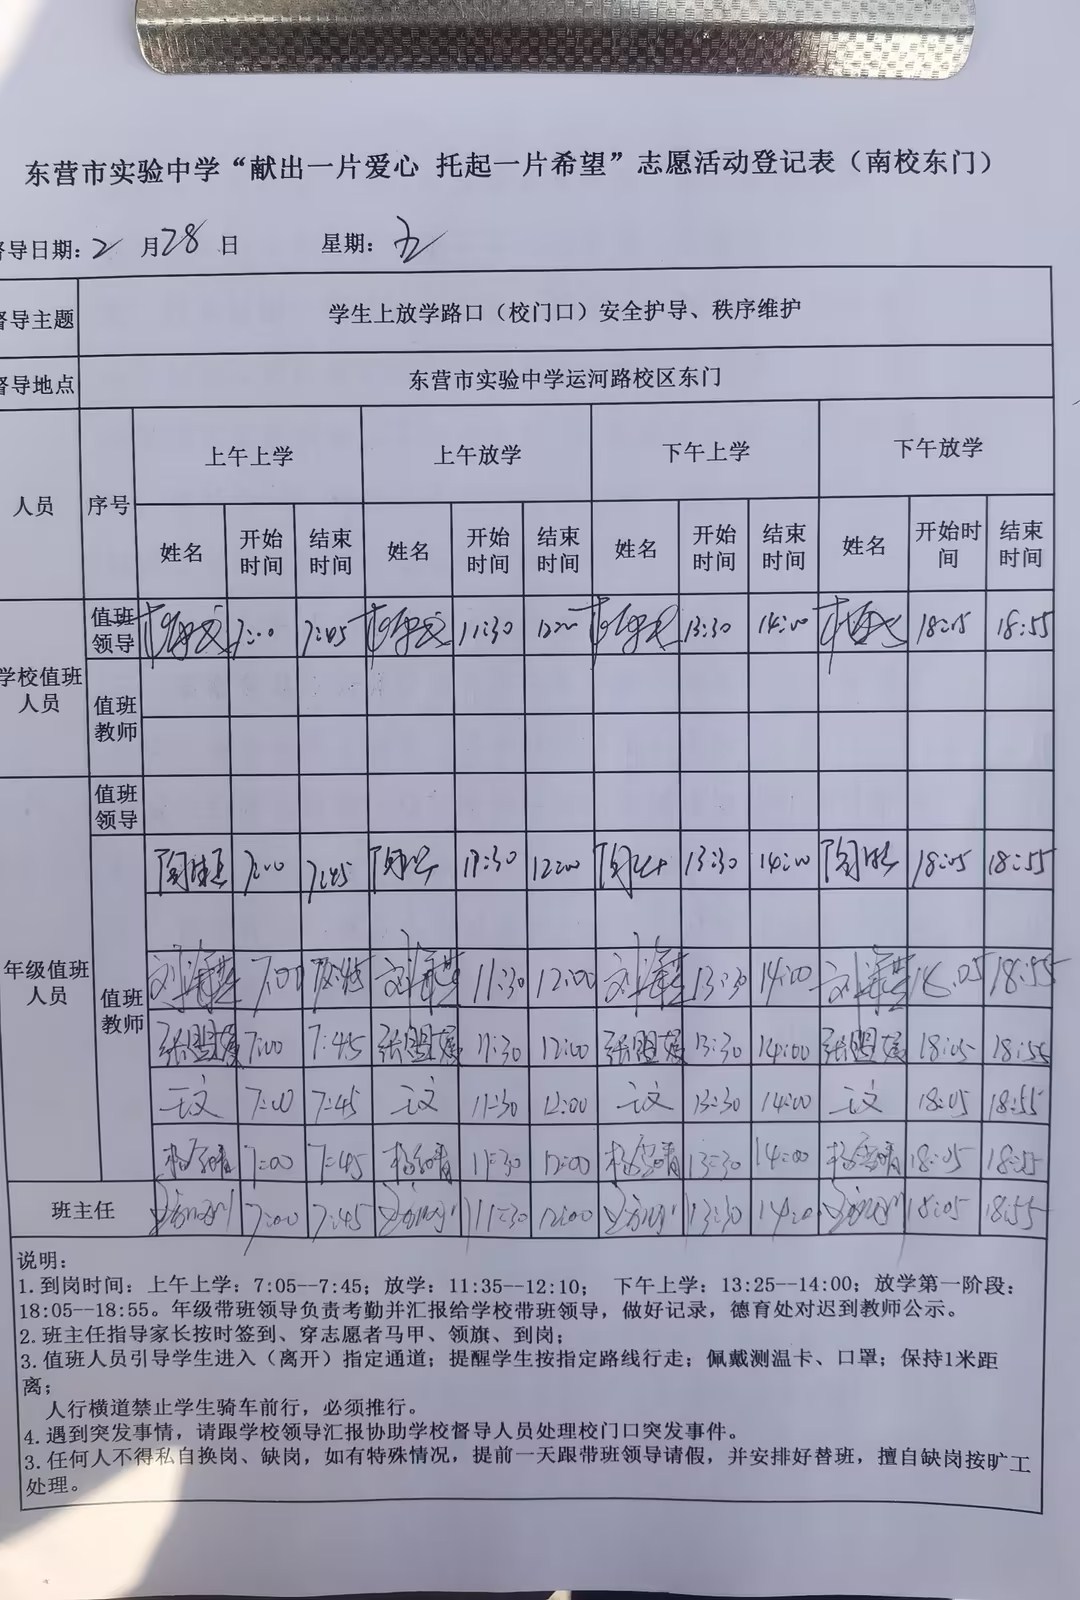 东营市实验中学“献出一片爱心 托起一片希望”志愿活动登记表（南校东门）
督导日期：2月28日 星期：五
督导主题 学生上放学路口（校门口）安全护导、秩序维护
督导地点 东营市实验中学运河路校区东门
人员 序号 上午上学 上午放学 下午上学 下午放学
姓名 开始时间 结束时间 姓名 开始时间 结束时间 姓名 开始时间 结束时间 姓名 开始时间 结束时间
学校值班人员 值班领导 7:00 7:45 11:30 13:30 14:00 18:05 18:55
值班教师
年级值班人员 值班领导
值班教师 7:00 7:45 11:30 12:00 13:30 14:00 18:05 18:55
7:00 11:30 12:00 13:30 14:00 18:05 18:55
张盟媛 7:00 7:45 张盟媛 11:30 12:00 张盟媛 13:30 14:00 张盟媛 18:05 18:55
王文 7:00 7:45 王文 11:30 12:00 王文 13:30 14:00 王文 18:05 18:55
7:00 7:45 11:30 12:00 13:30 14:00 18:05 18:55
班主任 7:00 7:45 11:30 12:00 13:30 14:00 18:05 18:55
说明：
1.到岗时间：上午上学：7:05--7:45；放学：11:35--12:10； 下午上学：13:25--14:00；放学第一阶段：
18:05--18:55。年级带班领导负责考勤并汇报给学校带班领导，做好记录，德育处对迟到教师公示。
2.班主任指导家长按时签到、穿志愿者马甲、领旗、到岗；
3.值班人员引导学生进入（离开）指定通道；提醒学生按指定路线行走；佩戴测温卡、口罩；保持1米距
离；
人行横道禁止学生骑车前行，必须推行。
4.遇到突发事情，请跟学校领导汇报协助学校督导人员处理校门口突发事件。
3.任何人不得私自换岗、缺岗，如有特殊情况，提前一天跟带班领导请假，并安排好替班，擅自缺岗按旷工
处理。